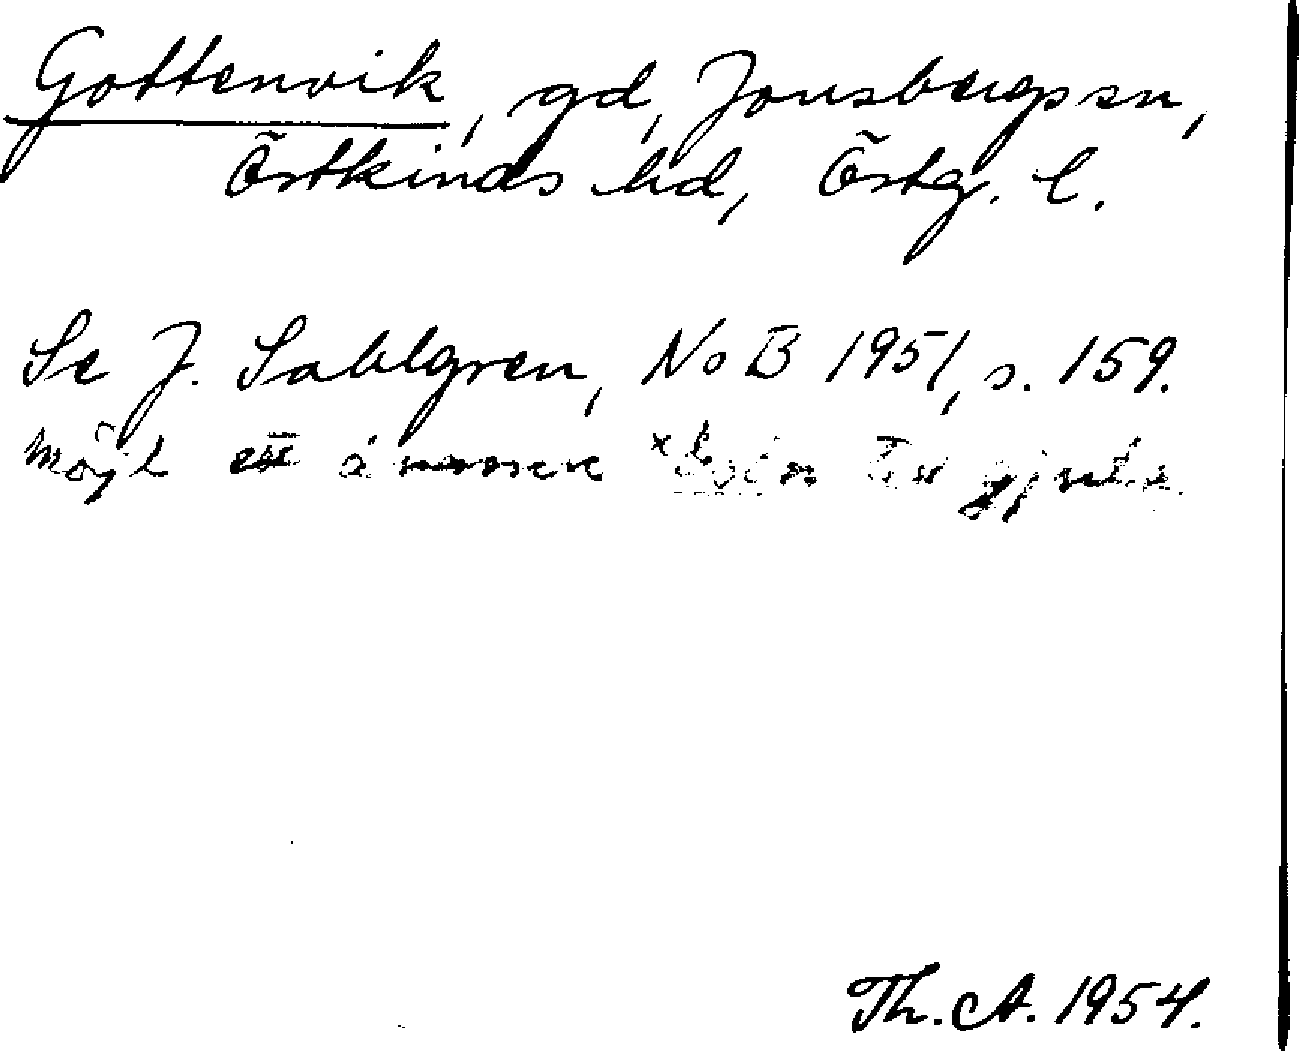 Gottenvik, gd, Jonsbergs sn,
Östkinds hd, Östg. l.
Se J. Sahlgren, NoB 1951, s. 159.
Möjl ett ånamn till gjuta
Th. A. 1954.